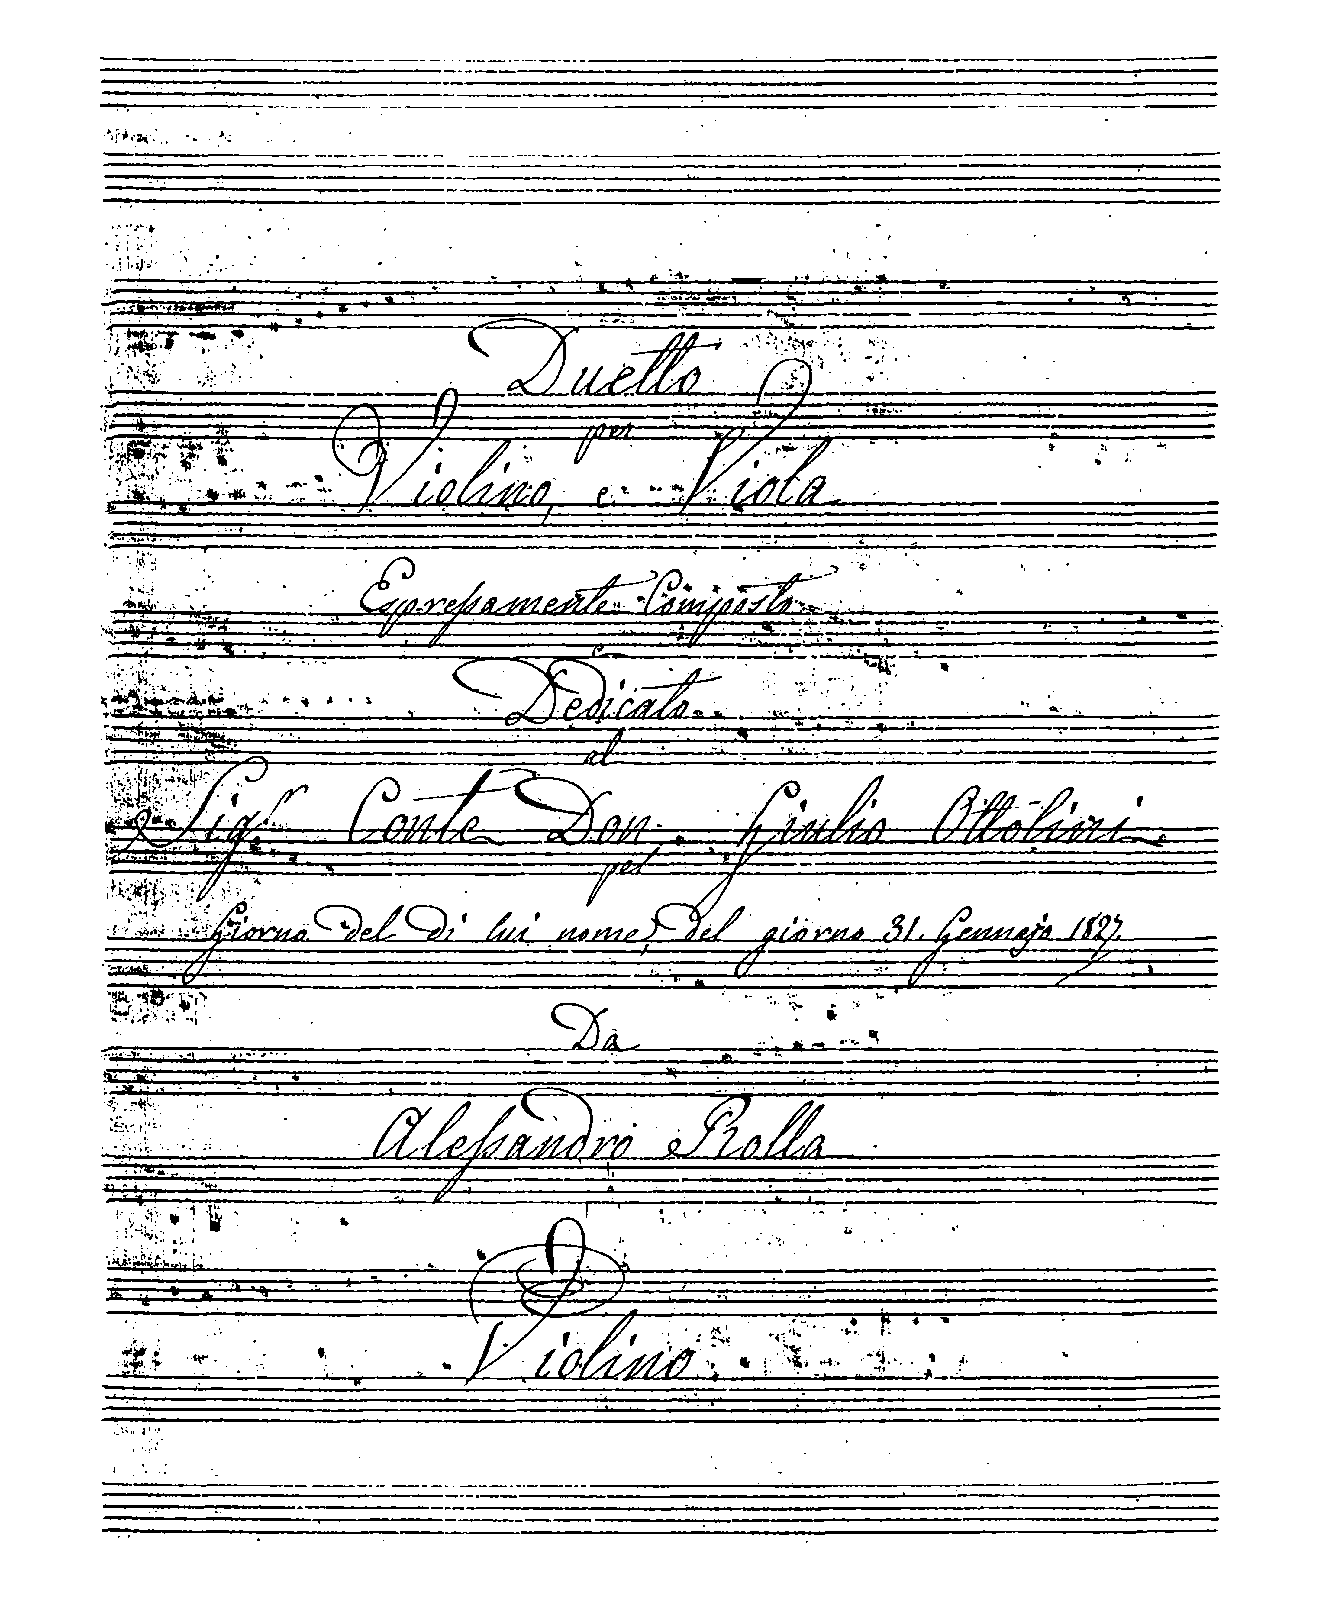 Duetto
per
Violino, e Viola
Espressamente Composto
e
Dedicato
al
Sig.r Conte Don Giulio Ottolini
pel
Giorno del di lui nome, del giorno 31. Gennajo 1827.
Da
Alessandro Rolla
Violino.